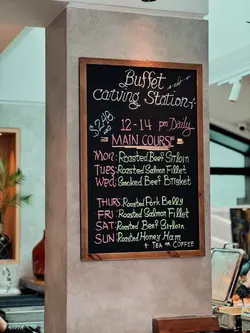 Buffet
Carving Station
$248
12-14 pm Daily
MAIN COURSE
MON: Roasted Beef Sirloin
TUES: Roasted Salmon Fillet
WED: Smoked Beef Brisket
THURS: Roasted Pork Belly
FRI: Roasted Salmon Fillet
SAT: Roasted Beef Sirloin
SUN: Roasted Honey Ham
+ TEA or COFFEE